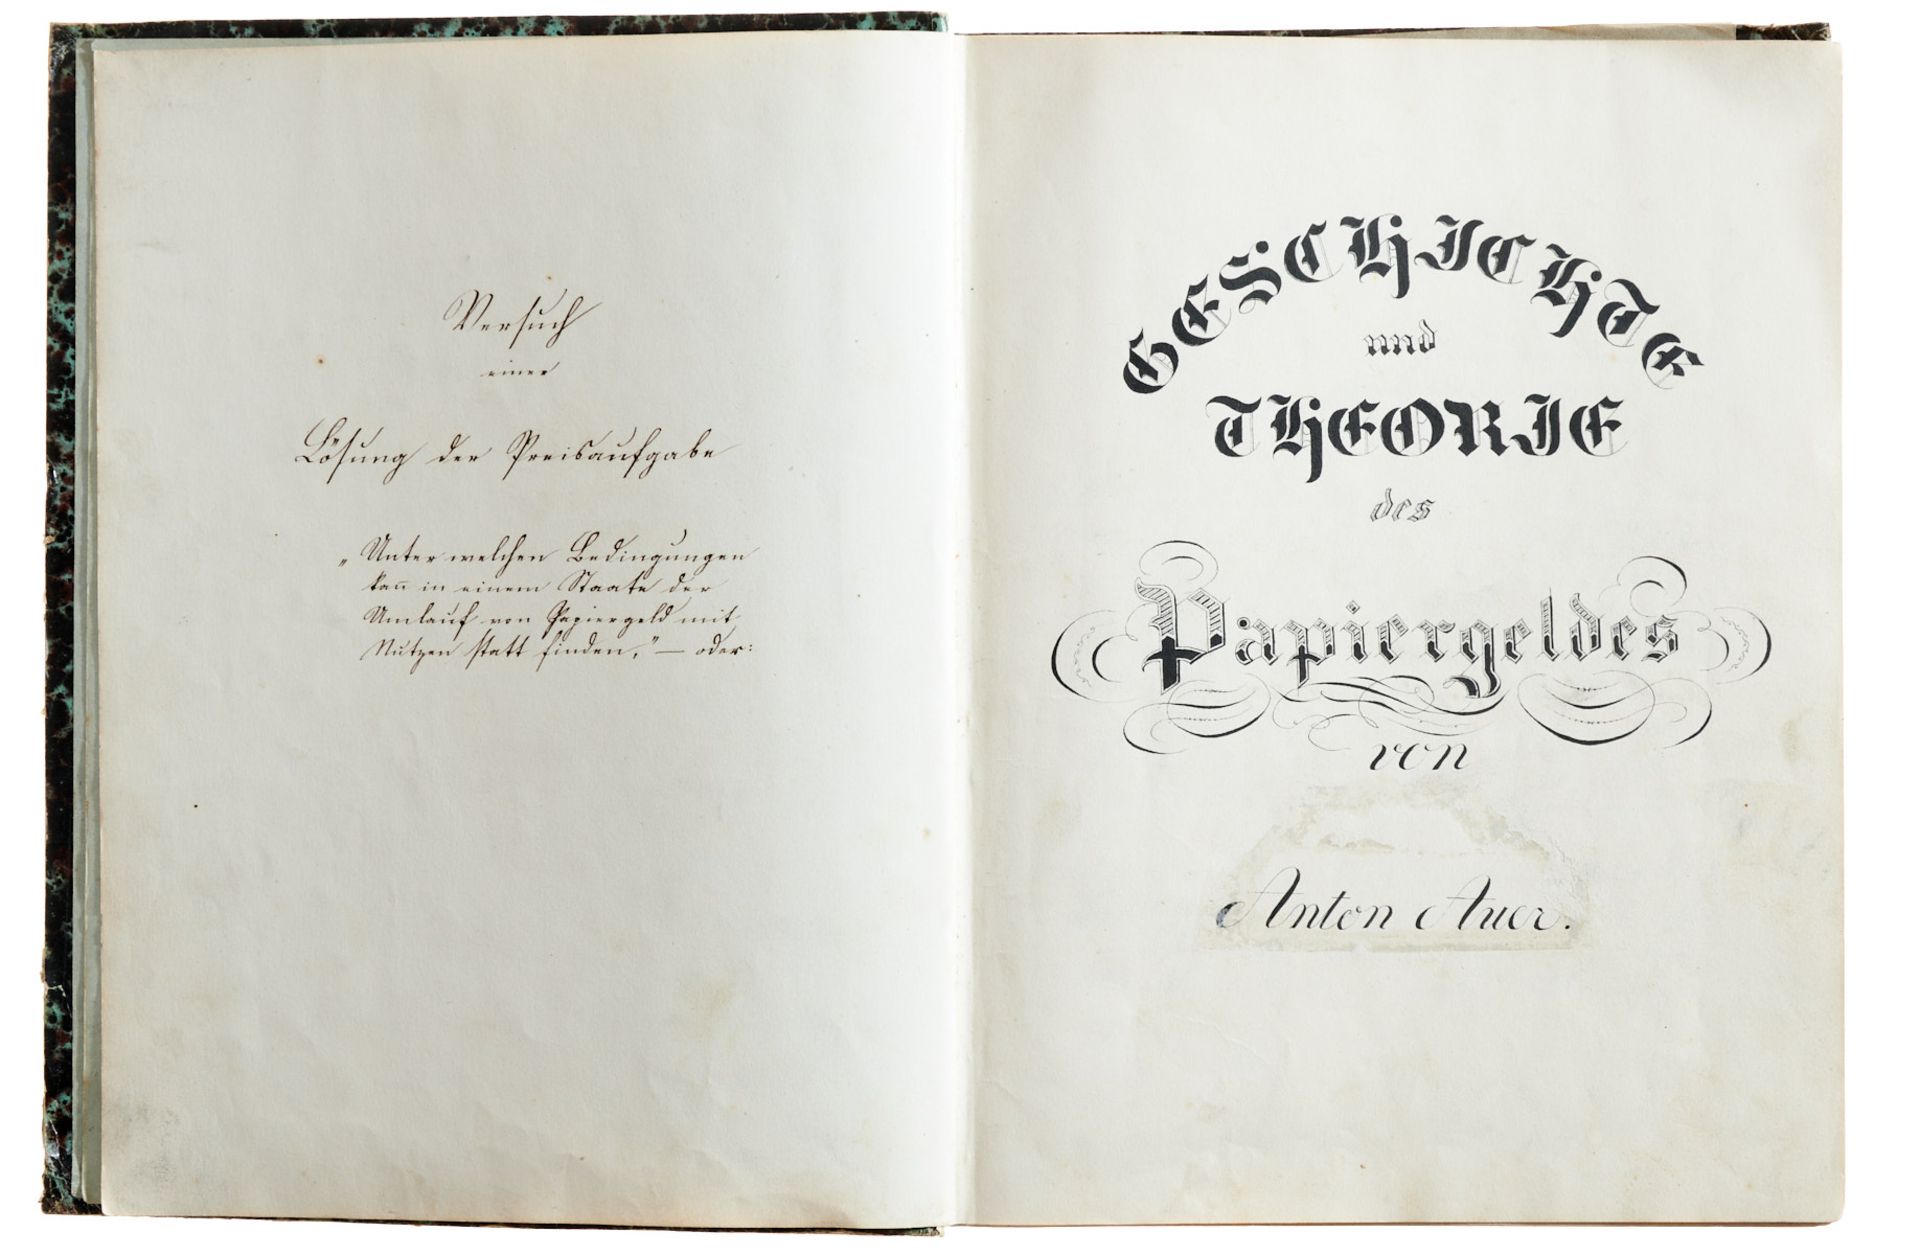 Versuch
einer
Lösung der Preisaufgabe
„Unter welchen Bedingungen
kan̅ in einem Staate der
Umlauf von Papiergeld mit
Nutzen statt finden,“ — oder:
GESCHICHTE
und
THEORIE
des
Papiergeldes
von
Anton Auer.